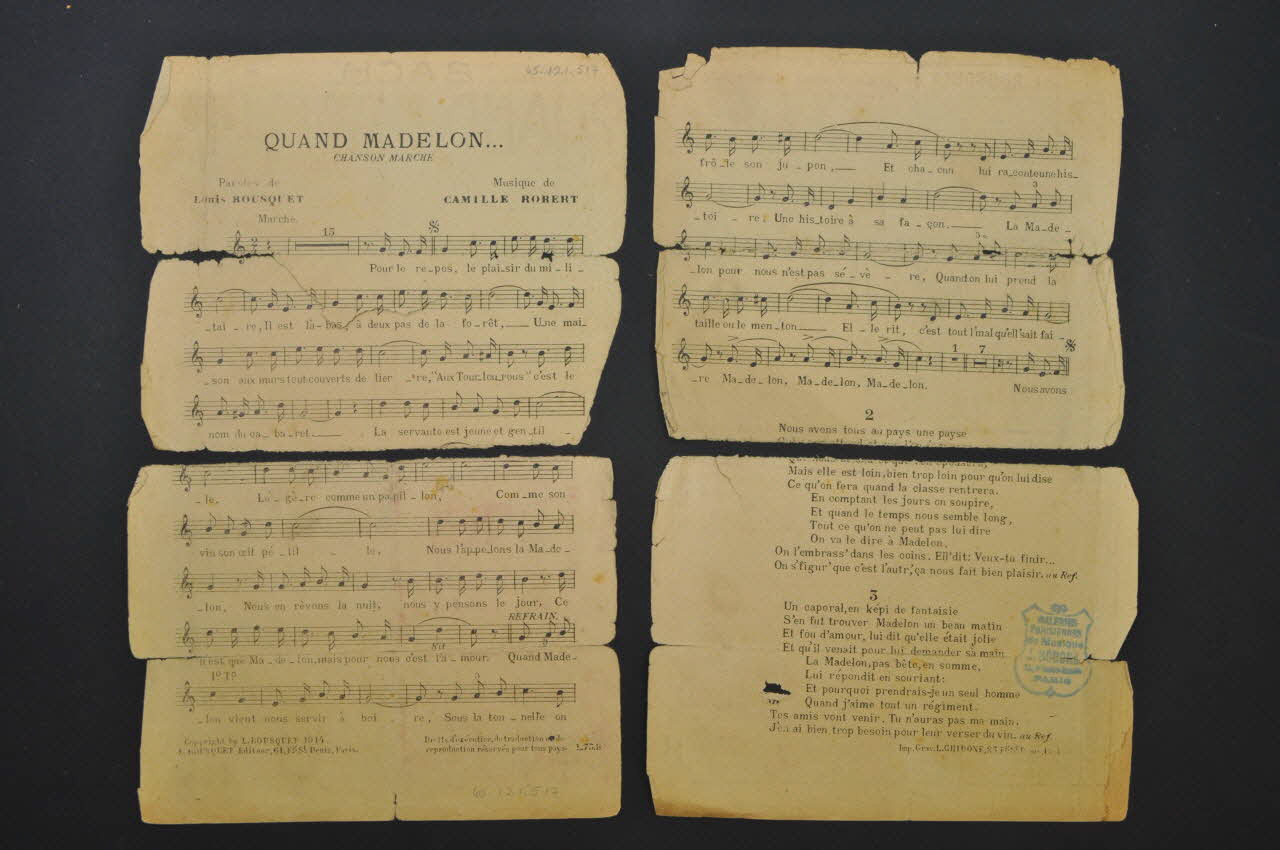 45.12.1.517
QUAND MADELON...
CHANSON MARCHE
Paroles de
Louis BOUSQUET
Musique de
CAMILLE ROBERT
Marche.
15
Pour le re_pos, le plai_sir du mi_li_
_tai_re, Il est là-bas, à deux pas de la fo_rêt,___ U_ne mai_
_son aux murs tout couverts de lier_re, "Aux Tour_lou_rous" c'est le
nom du ca_ba_ret___ La servante est jeune et gen_til_
_le, Lé_gè_re comme un pa_pil_lon, Com_me son
vin son œil pé_til_le, Nous l'ap_pe_lons la Ma_de_
_lon, Nous en rêvons la nuit, nous y pensons le jour, Ce
REFRAIN.
n'est que Ma_de_lon, mais pour nous c'est l'a_mour. Quand Made_
1º Tº
_lon vient nous servir à boi_re, Sous la ton_nelle on
Copyright by L. BOUSQUET 1914.
L. BOUSQUET Editeur, 61, Fg St Denis, Paris.
Droits d'exécution, de traduction et de
reproduction réservés pour tous pays.
L.75.B
45.12.1.517
frô_le son ju_pon,___ Et cha_cun lui ra_conte une his_
_toi_re, Une his_toire à sa fa_çon.___ La Ma_de_
3
_lon pour nous n'est pas sé_vè_re, Quand on lui prend la
taille ou le men_ton___ El_le rit, c'est tout l'mal qu'ell' sait fai_
1 7
_re Ma_de_lon, Ma_de_lon, Ma_de_lon. Nous avons
2
Nous avons tous au pays une payse
Mais elle est loin, bien trop loin pour qu'on lui dise
Ce qu'on fera quand la classe rentrera.
En comptant les jours on soupire,
Et quand le temps nous semble long,
Tout ce qu'on ne peut pas lui dire
On va le dire à Madelon.
On l'embrass' dans les coins. Ell' dit: Veux-tu finir...
On s'figur' que c'est l'autr', ça nous fait bien plaisir. au Ref.
3
Un caporal, en képi de fantaisie
S'en fut trouver Madelon un beau matin
Et fou d'amour, lui dit qu'elle était jolie
Et qu'il venait pour lui demander sa main
La Madelon, pas bête, en somme,
Lui répondit en souriant:
Et pourquoi prendrais-je un seul homme
Quand j'aime tout un régiment.
Tes amis vont venir. Tu n'auras pas ma main.
J'en ai bien trop besoin pour leur verser du vin. au Ref.
GALERIES
PARISIENNES
de Musique
PARIS
Imp. Grav. L. GHIDONE,